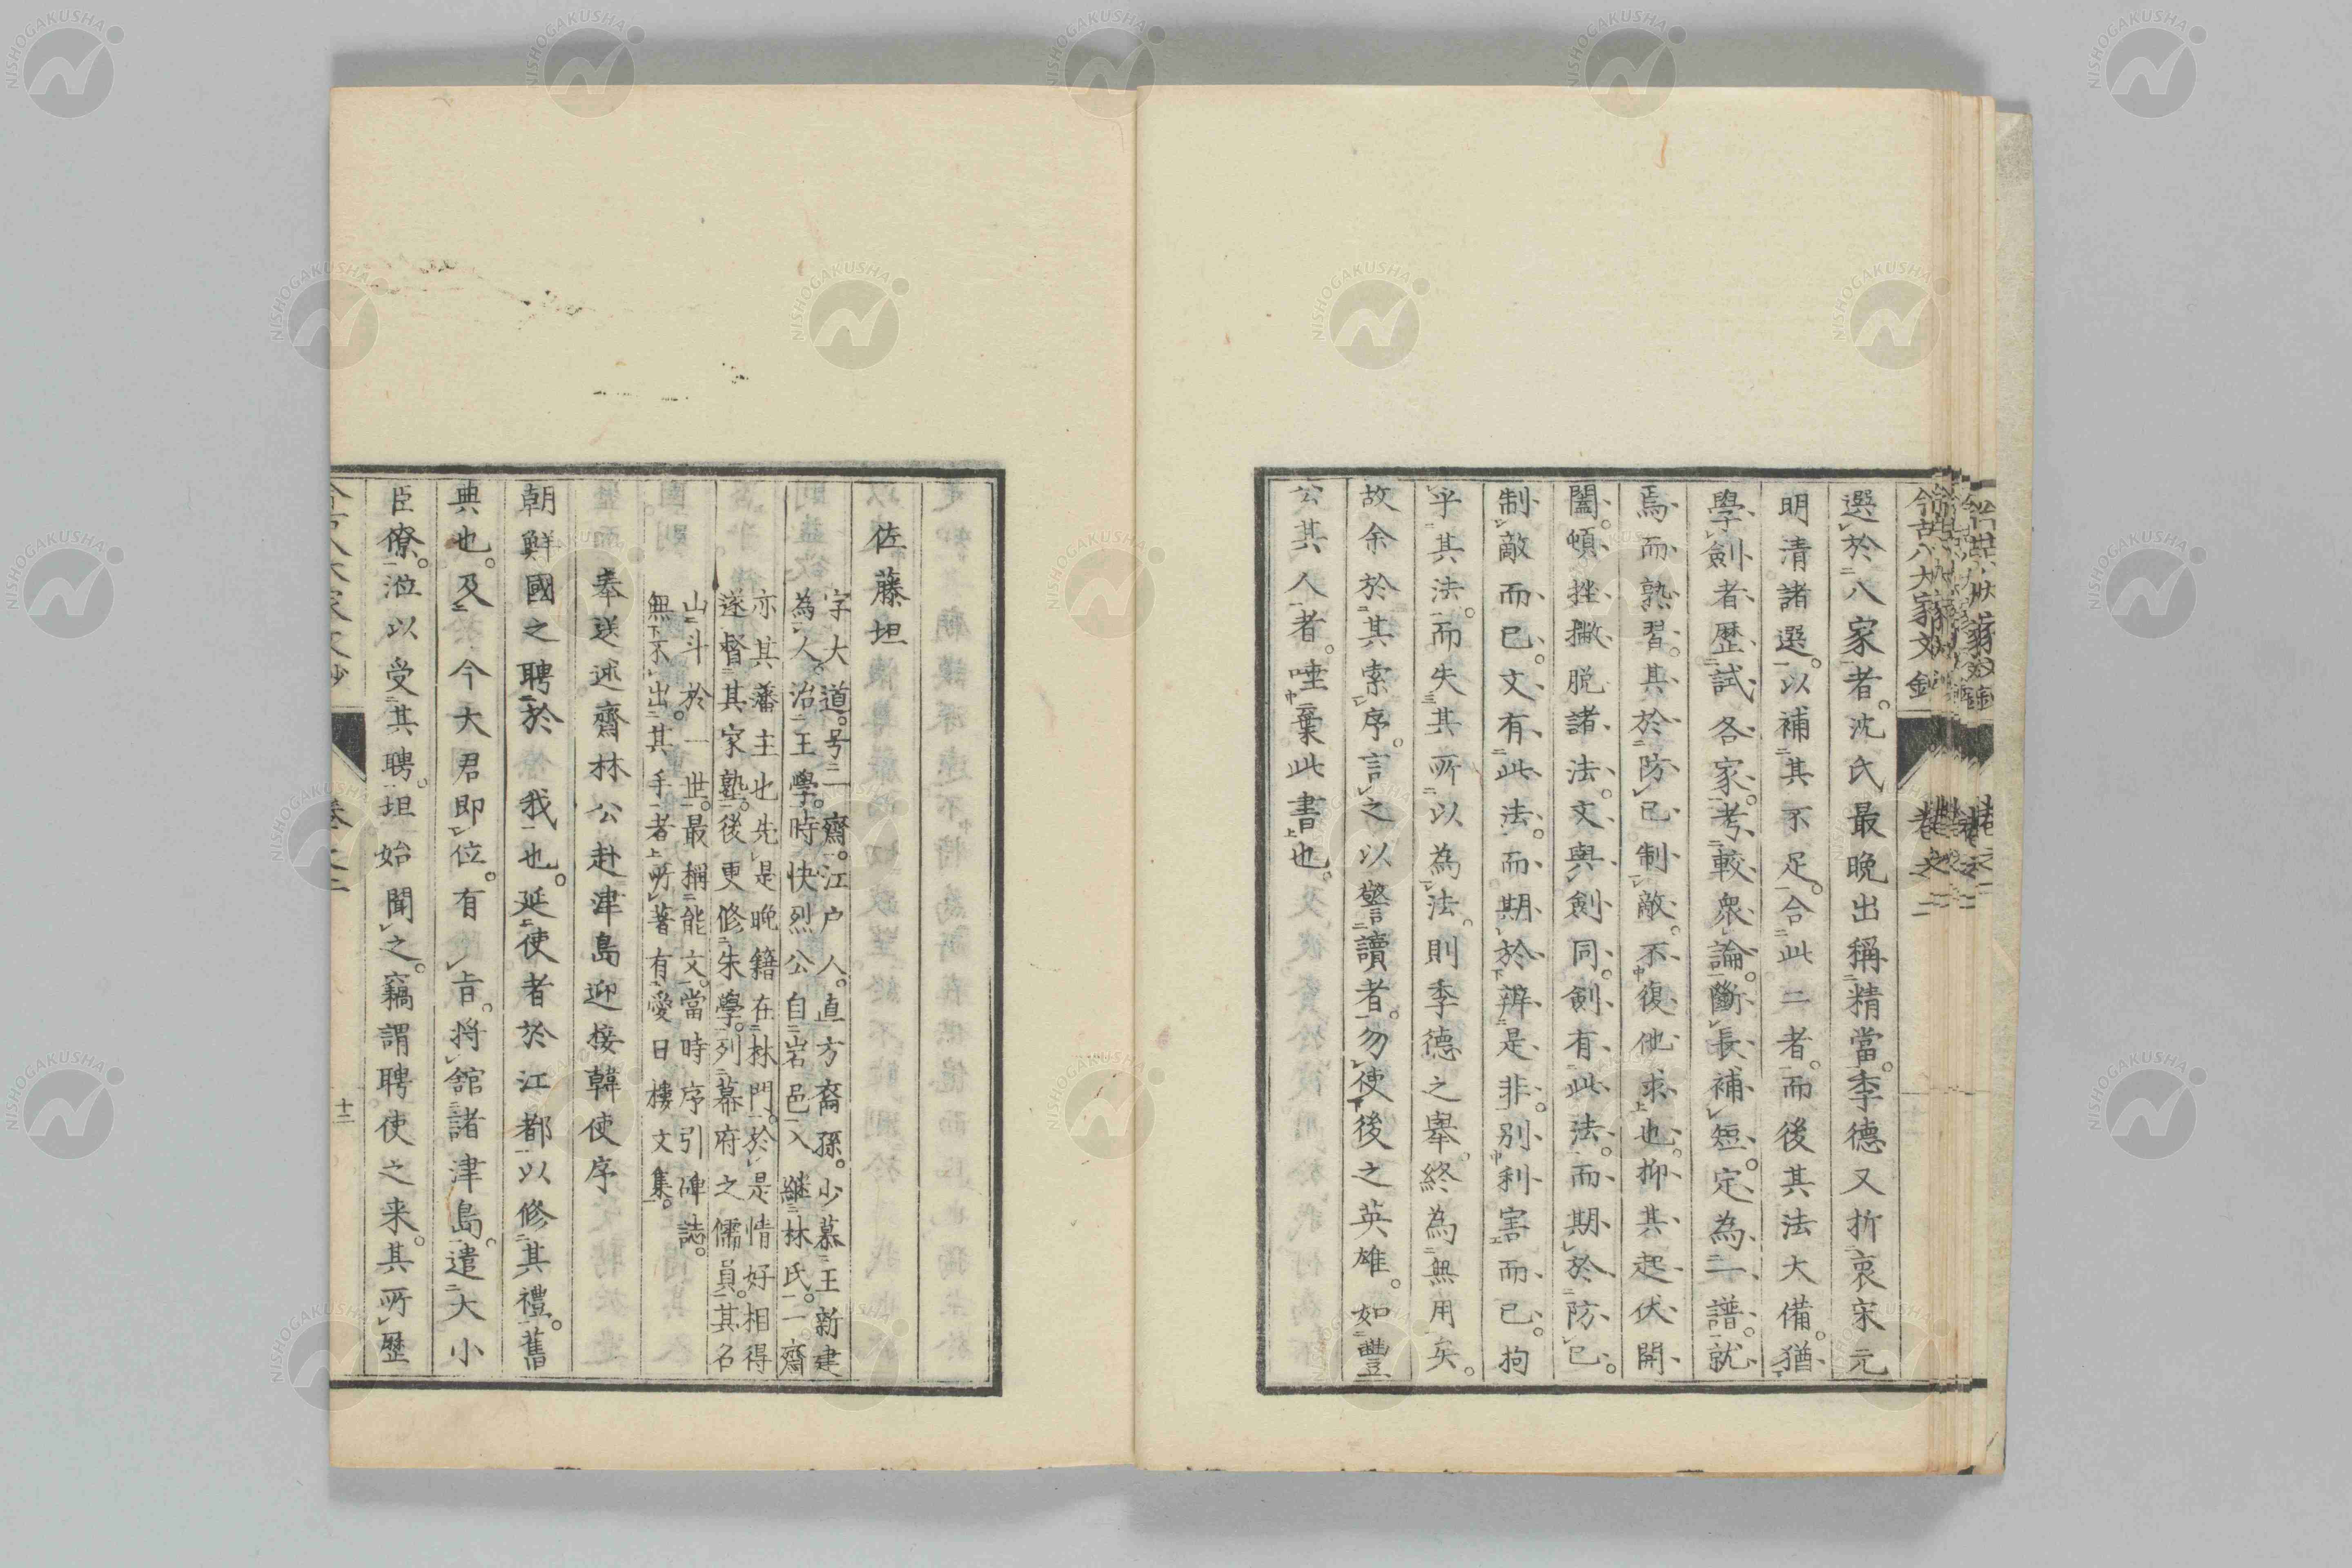 選於八家者。沈氏最晩出稱精當。李德又折衷宋元
明清諸選。以補其不足。合此二者。而後其法大備。猶
學劍者歷試各家。考較衆論。斷長補短。定為一譜。就
焉而熟習。其於防已制敵。不復他求也。抑其起伏開
闔。頓挫撇脱諸法。文與劍同。劍有此法。而期於防已。
制敵而已。文有此法。而期於辨是非。別利害而已。拘
乎其法。而失其所以為法。則季德之舉。終為無用矣。
故余於其索序。言之以警讀者。勿使後之英雄。如豐
公其人者。唾棄此書也。
佐藤坦
字大道。号一齋。江户人。直方裔孫。少慕王新建
為人。治王學。時快烈公自岩邑入繼林氏。一齋
亦其藩主也。先是晩籍在林門。於是情好相得
遂督其家塾。後更修朱學。列幕府之儒員。其名
山斗於一世。最稱能文。當時序引碑誌。
無不出其手者。所著有愛日樓文集。
奉送述齋林公赴津島迎接韓使序
朝鮮國之聘於我也。延使者於江都以修其禮。舊
典也。及今大君即位。有旨。將館諸津島。遣大小
臣僚。涖以受其聘。坦始聞之。竊謂聘使之来。其所歷
卷之二
十二
NISHOGAKUSHA